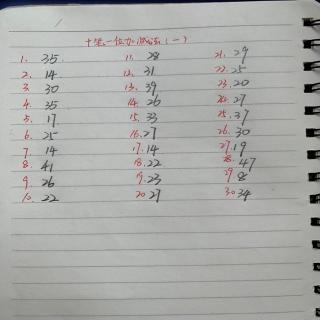 十笔一位加减法(一)
1. 35 11. 28 21. 29
2. 14 12. 31 22. 25
3. 30 13. 39 23. 20
4. 35 14. 26 24. 27
5. 17 15. 33 25. 37
6. 25 16. 27 26. 30
7. 14 17. 14 27. 19
8. 41 18. 22 28. 47
9. 26 19. 23 29. 8
10. 22 20 27 30 34